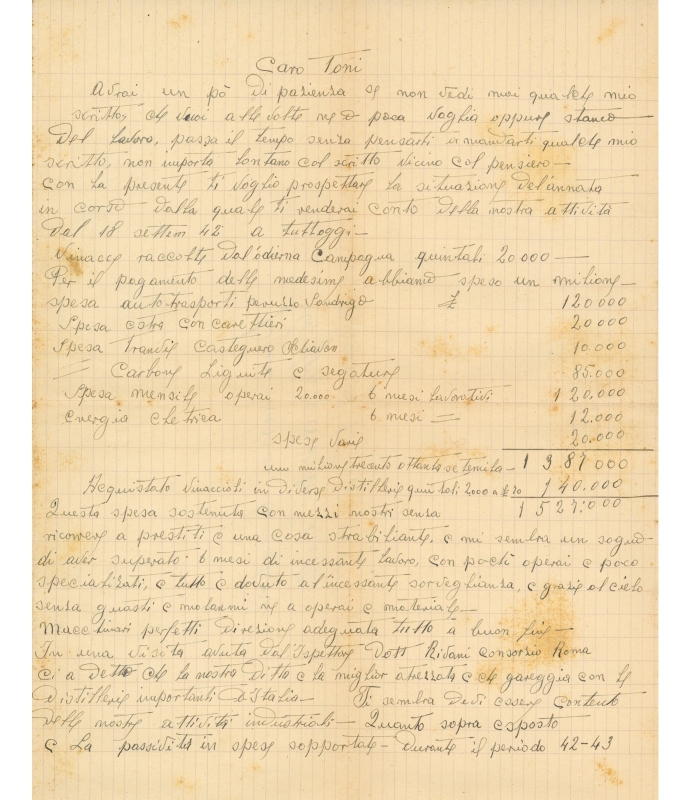 Caro Toni
Avrai un pò di pazienza se non vedi mai qualche mio
scritto, che vuoi alle volte ne ò poca voglia oppure stanco
Del lavoro, passa il tempo senza pensarti in mandarti qualche mio
scritto, non importa lontano col scritto vicino col pensiero —
con la presente ti voglio prospettare la situazione del'annata
in corso dalla quale ti renderai conto della nostra attività
Dal 18 settem 42 a tuttoggi —
Vinacce raccolte dal'odierna Campagna quintali 20000 —
Per il pagamento delle medesime abbiamo speso un milione —
spesa autotrasporti peruzzo Sandrigo £ 120.000
Spesa oltre con carettieri 20.000
Spesa Tranvie Castegnero 10.000
= Carbone Lignite e segature 85.000
Spesa mensile operai 20.000 6 mesi lavorativi 120.000
energia eletrica 6 mesi = 12.000
spese varie 20.000
un milione trecento ottantasetemila — 1387000
Acquistato vinaccioli in diverse Distillerie quintali 2000 a £ 70 140.000
Questa spesa sostenuta con mezzi nostri senza 1527:000
ricorrere a prestiti è una cosa strabiliante, e mi sembra un sogno
di aver superato 6 mesi di incessante lavoro, con pochi operai e poco
specializati, e tutto è dovuto al'incessante sorveglianza, e grazie al cielo
senza guasti e malanni ne a operai e materiale —
Macchinari perfetti Direzione adeguata tutto a buon fine —
In una visita avuta dal Ispettore Dott Ridani consorzio Roma
ci a Detto che la nostra Ditta è la miglior atrezzata e che gareggia con le
Distillerie importanti d'Italia — Ti sembra Devi essere contento
delle nostre attività industriali — Quanto sopra esposto
è La passività in spese sopportate — durante il periodo 42-43